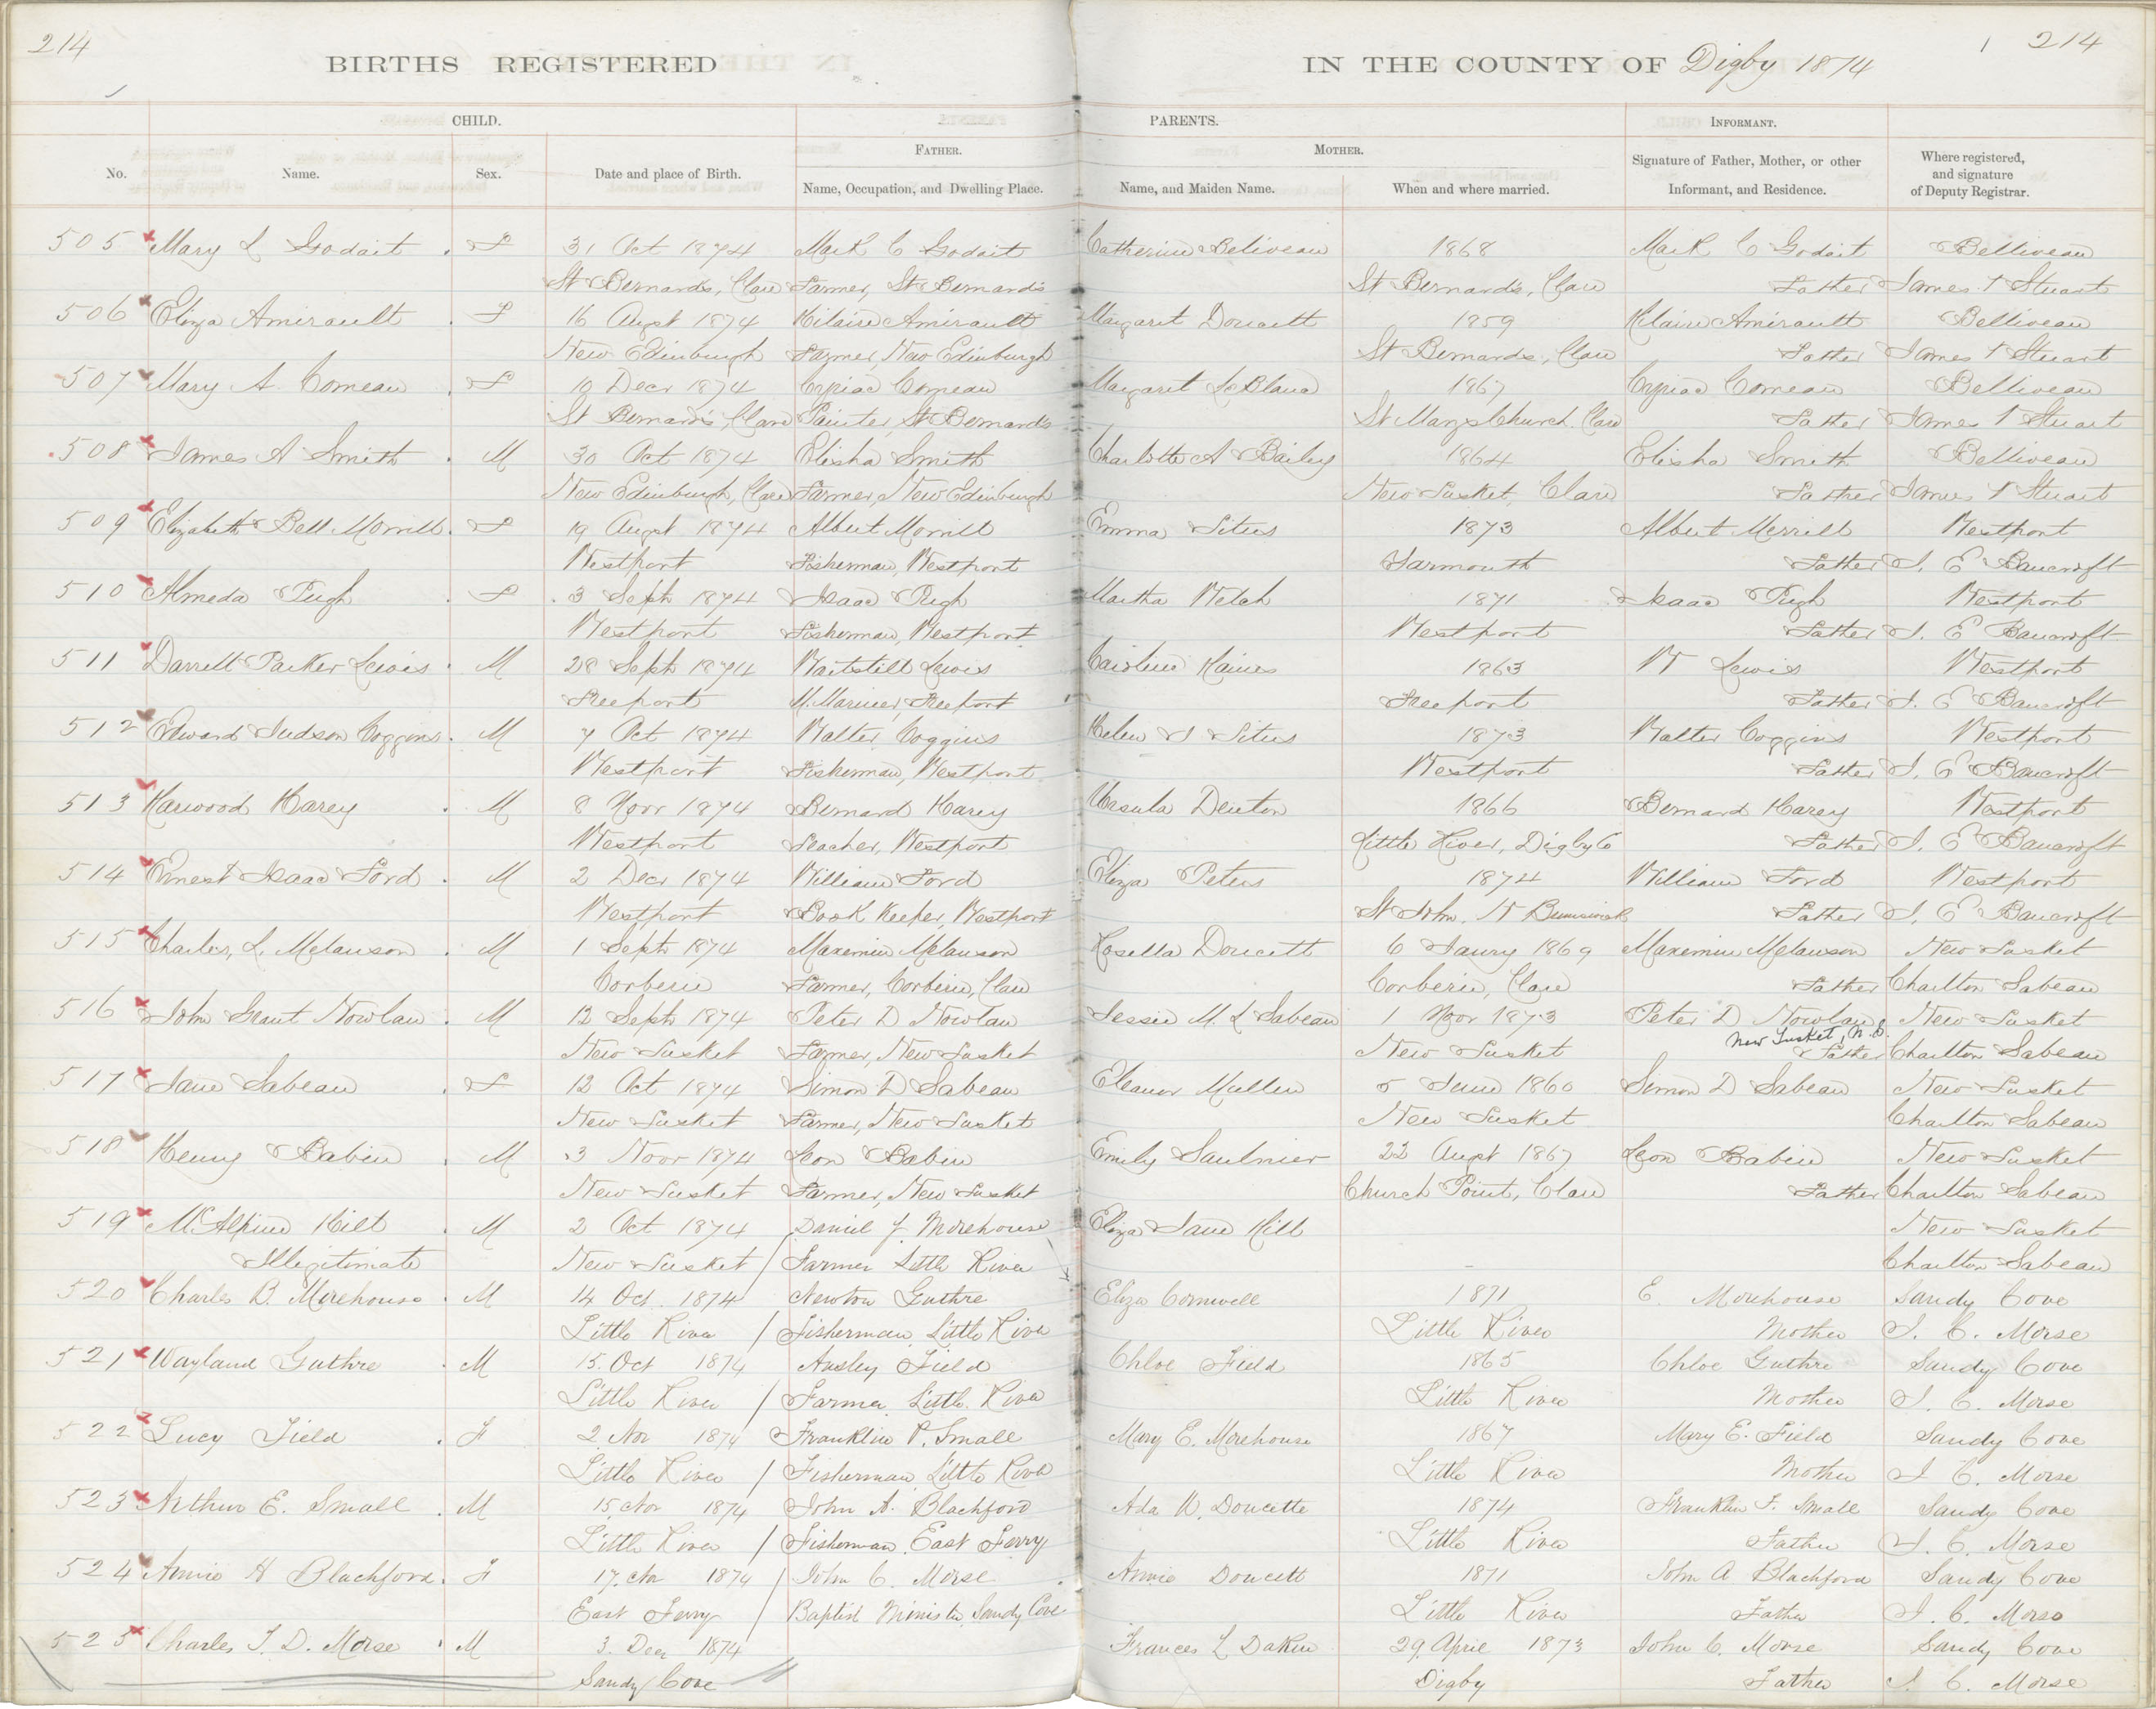 214
BIRTHS REGISTERED
IN THE COUNTY OF Digby 1874
1 214
CHILD.
PARENTS.
INFORMANT.
FATHER.
MOTHER.
No.
Name.
Sex.
Date and place of Birth.
Name, Occupation, and Dwelling Place.
Name, and Maiden Name.
When and where married.
Signature of Father, Mother, or other
Informant, and Residence.
Where registered,
and signature
of Deputy Registrar.
505 Mary L Godait F 31 Oct 1874 Mark C Godait Catherine Beliveau 1868 Mark C Godait Belliveau
St Bernards, Clare Farmer, St Bernards St Bernards, Clare Father James T Stuart
506 Eliza Amirault F 16 Augst 1874 Hilaire Amirault Margaret Doucett 1859 Hilaire Amirault Belliveau
New Edinburgh Farmer, New Edinburgh St Bernards, Clare Father James T Stuart
507 Mary A Comeau F 10 Decr 1874 Cypriac Comeau Margaret LeBlanc 1867 Cypriac Comeau Belliveau
St Bernards, Clare Painter, St Bernards St Marys Church. Clare Father James T Stuart
508 James A Smith M 30 Oct 1874 Elisha Smith Charlotte A Bailey 1864 Elisha Smith Belliveau
New Edinburgh, Clare Farmer, New Edinburgh New Tusket, Clare Father James T Stuart
509 Elizabeth Bell Morrill F 19 Augst 1874 Albert Morrill Emma Titus 1873 Albert Merrill Westport
Westport Fisherman, Westport Yarmouth Father J. E Bancroft
510 Almeda Pugh F 3 Sept 1874 Isaac Pugh Martha Welch 1871 Isaac Pugh Westport
Westport Fisherman, Westport Westport Father J. E Bancroft
511 Darrell Parker Lewis M 28 Sept 1874 Waitstill Lewis Caroline Haines 1863 W Lewis Westport
Freeport M. Mariner, Freeport Freeport Father J. E Bancroft
512 Edward Judson Coggins M 7 Oct 1874 Walter Coggins Helen J Titus 1873 Walter Coggins Westport
Westport Fisherman, Westport Westport Father J. E Bancroft
513 Harwood Harey M 8 Novr 1874 Bernard Harey Ursula Denton 1866 Bernard Harey Westport
Westport Teacher, Westport Little River, Digby Co Father J. E Bancroft
514 Ernest Isaac Ford M 2 Decr 1874 William Ford Eliza Peters 1874 William Ford Westport
Westport Book Keeper, Westport St John, N Brunswick Father J. E Bancroft
515 Charles, L. Melanson M 1 Sept 1874 Maxemin Melanson Rosella Doucett 6 Janry 1869 Maxemin Melanson New Tusket
Corberie Farmer, Corberie, Clare Corberie, Clare Father Charlton Sabean
516 John Grant Nowlan M 12 Sept 1874 Peter D Nowlan Jessie M. L Sabean 1 Novr 1873 Peter D Nowlan New Tusket
New Tusket Farmer, New Tusket New Tusket New Tusket, N.S. Father Charlton Sabean
517 Jane Sabean F 12 Oct 1874 Simon D Sabean Eleanor Mullen 5 June 1860 Simon D Sabean New Tusket
New Tusket Farmer, New Tusket New Tusket Charlton Sabean
518 Henry Babin M 3 Novr 1874 Leon Babin Emily Saulnier 22 Augt 1867 Leon Babin New Tusket
New Tusket Farmer, New Tusket Church Point, Clare Father Charlton Sabean
519 McAlpine Hill M 2 Oct 1874 Daniel J. Morehouse Eliza Jane Hill New Tusket
Illegitimate New Tusket / Farmer Little River Charlton Sabean
520 Charles B. Morehouse M 14 Oct. 1874 Newton Guthre Eliza Cornwell 1871 E. Morehouse Sandy Cove
Little River / Fisherman Little River Little River Mother J. C. Morse
521 Wayland Guthre M 15. Oct 1874 Ansley Field Chloe Field 1865 Chloe Guthre Sandy Cove
Little River / Farmer Little River Little River Mother J. C. Morse
522 Lucy Field F 2 Nov 1874 Franklin P. Small Mary E. Morehouse 1867 Mary E. Field Sandy Cove
Little River / Fisherman Little River Little River Mother J C. Morse
523 Arthur E. Small M 15 Nov 1874 John A. Blachford Ada W. Doucette 1874 Franklin F. Small Sandy Cove
Little River / Fisherman East Ferry Little River Father J. C. Morse
524 Annie H Blachford F 17. Nov 1874 / John C. Morse Annie Doucett 1871 John A Blachford Sandy Cove
East Ferry / Baptist Minister Sandy Cove Little River Father J. C. Morse
525 Charles T. D. Morse M 3. Dec 1874 Frances L Dakin 29. April 1873 John C. Morse Sandy Cove
Sandy Cove Digby Father J. C. Morse